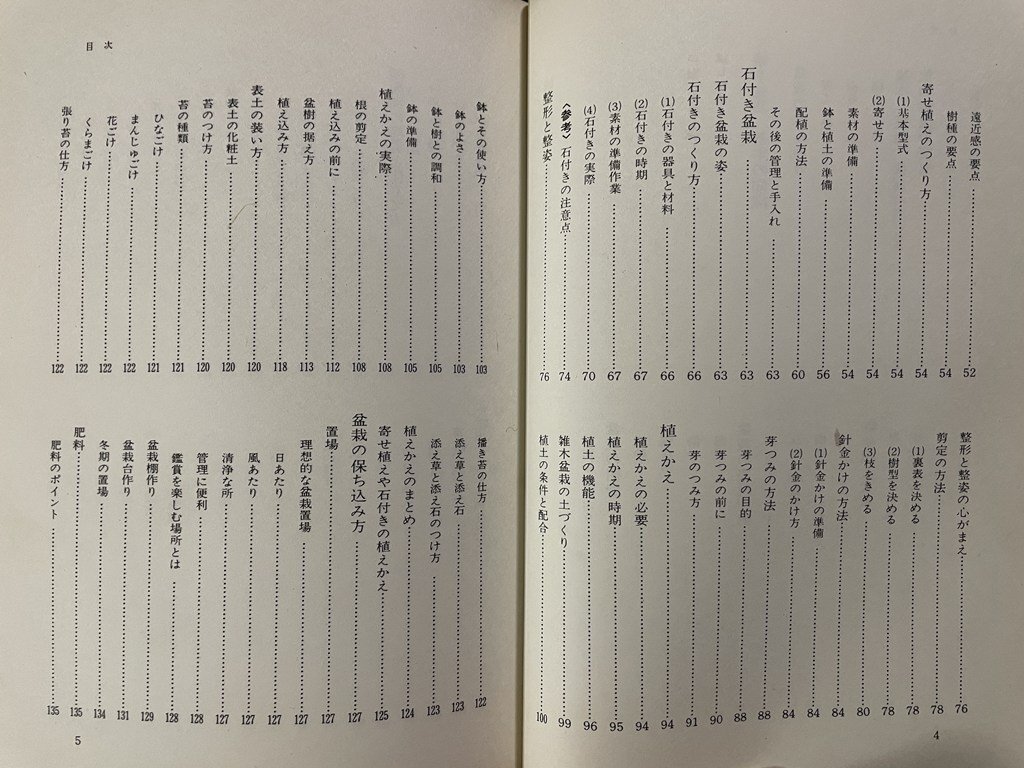 遠近感の要点……52
樹種の要点……54
寄せ植えのつくり方……54
(1)基本型式……54
(2)寄せ方……54
素材の準備……54
鉢と植土の準備……56
配植の方法……60
その後の管理と手入れ……63
石付き盆栽……63
石付き盆栽の姿……63
石付きのつくり方……66
(1)石付きの器具と材料……66
(2)石付きの時期……67
(3)素材の準備作業……67
(4)石付きの実際……70
〈参考〉石付きの注意点……74
整形と整姿……76
整形と整姿の心がまえ……76
剪定の方法……78
(1)裏表を決める……78
(2)樹型を決める……78
(3)枝をきめる……80
針金かけの方法……84
(1)針金かけの準備……84
(2)針金のかけ方……84
芽つみの方法……88
芽つみの目的……88
芽つみの前に……90
芽のつみ方……91
植えかえ……94
植えかえの必要……94
植えかえの時期……95
植土の機能……96
雑木盆栽の土づくり……99
植土の条件と配合……100
4
目次
鉢とその使い方……103
鉢のよさ……103
鉢と樹との調和……105
鉢の準備……105
植えかえの実際……108
根の剪定……108
植え込みの前に……112
盆樹の据え方……113
植え込み方……118
表土の装い方……120
表土の化粧土……120
苔のつけ方……120
苔の種類……121
ひなごけ……121
まんじゅごけ……122
花ごけ……122
くらまごけ……122
張り苔の仕方……122
播き苔の仕方……122
添え草と添え石……123
添え草と添え石のつけ方……123
植えかえのまとめ……124
寄せ植えや石付きの植えかえ……125
盆栽の保ち込み方……127
置場……127
理想的な盆栽置場……127
日あたり……127
風あたり……127
清浄な所……127
管理に便利……128
鑑賞を楽しむ場所とは……128
盆栽棚作り……129
盆栽台作り……131
冬期の置場……134
肥料……135
肥料のポイント……135
5